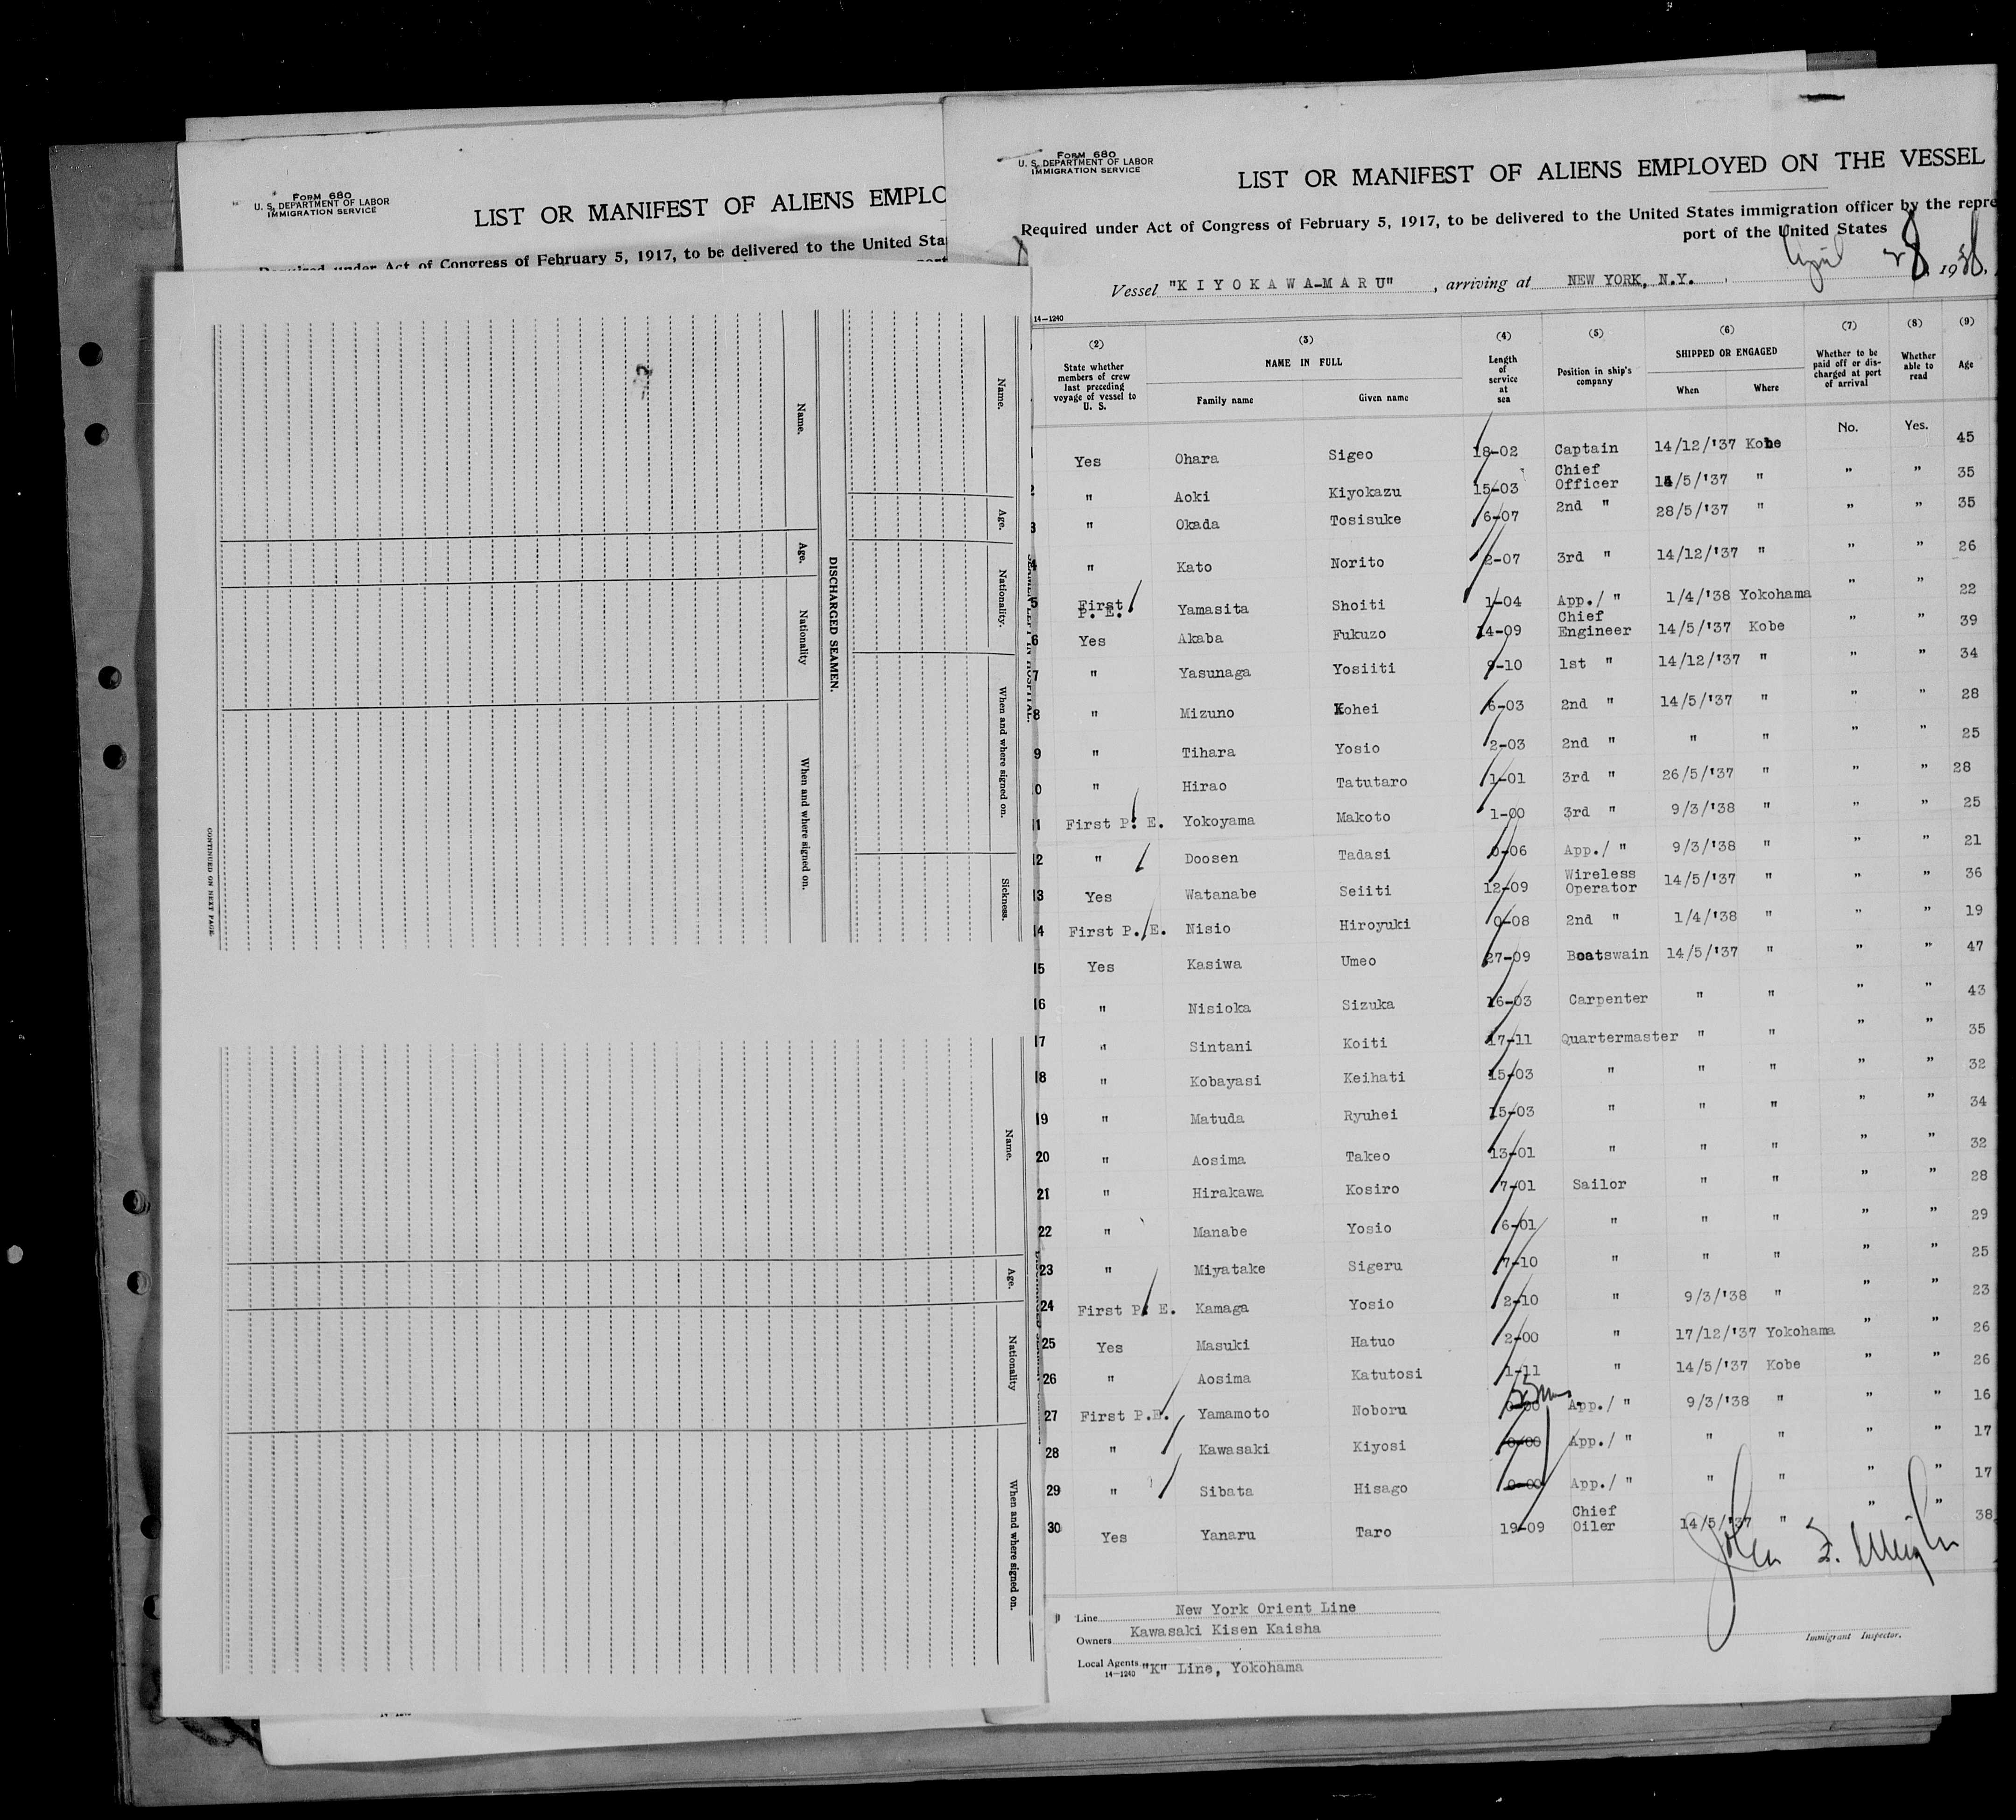 FORM 680
U. S. DEPARTMENT OF LABOR
IMMIGRATION SERVICE
LIST OR MANIFEST OF ALIENS EMPLO
Required under Act of Congress of February 5, 1917, to be delivered to the United Sta
port
Name.
Age.
Nationality.
When and where signed on.
Sickness.
DISCHARGED SEAMEN.
Name.
Age.
Nationality
When and where signed on.
CONTINUED ON NEXT PAGE.
Name.
Age.
Nationality
When and where signed on.
SEAMEN LEFT IN HOSPITAL.
FORM 680
U. S. DEPARTMENT OF LABOR
IMMIGRATION SERVICE
LIST OR MANIFEST OF ALIENS EMPLOYED ON THE VESSEL
Required under Act of Congress of February 5, 1917, to be delivered to the United States immigration officer by the repre
port of the United States
Vessel "KIYOKAWA-MARU", arriving at NEW YORK, N.Y., April 28, 1938,
14-1240
(2) (3) (4) (5) (6) (7) (8) (9)
State whether members of crew last preceding voyage of vessel to U. S.
NAME IN FULL
Family name Given name
Length of service at sea
Position in ship's company
SHIPPED OR ENGAGED
When Where
Whether to be paid off or discharged at port of arrival
Whether able to read
Age
No. Yes.
1 Yes Ohara Sigeo 18-02 Captain 14/12/'37 Kobe 45
2 " Aoki Kiyokazu 15-03 Chief Officer 14/5/'37 " " " 35
3 " Okada Tosisuke 6-07 2nd " 28/5/'37 " " " 35
4 " Kato Norito 2-07 3rd " 14/12/'37 " " " 26
5 First P. E. Yamasita Shoiti 1-04 App./ " 1/4/'38 Yokohama " " 22
6 Yes Akaba Fukuzo 14-09 Chief Engineer 14/5/'37 Kobe " " 39
7 " Yasunaga Yosiiti 9-10 1st " 14/12/'37 " " " 34
8 " Mizuno Kohei 6-03 2nd " 14/5/'37 " " " 28
9 " Tihara Yosio 2-03 2nd " " " " " 25
0 " Hirao Tatutaro 1-01 3rd " 26/5/'37 " " " 28
11 First P. E. Yokoyama Makoto 1-00 3rd " 9/3/'38 " " " 25
12 " Doosen Tadasi 0-06 App./ " 9/3/'38 " " " 21
13 Yes Watanabe Seiiti 12-09 Wireless Operator 14/5/'37 " " " 36
14 First P. E. Nisio Hiroyuki 0-08 2nd " 1/4/'38 " " " 19
15 Yes Kasiwa Umeo 27-09 Boatswain 14/5/'37 " " " 47
16 " Nisioka Sizuka 16-03 Carpenter " " " " 43
17 " Sintani Koiti 17-11 Quartermaster " " " " 35
18 " Kobayasi Keihati 15-03 " " " " " 32
19 " Matuda Ryuhei 15-03 " " " " " 34
20 " Aosima Takeo 13-01 " " " " " 32
21 " Hirakawa Kosiro 7-01 Sailor " " " " 28
22 " Manabe Yosio 6-01 " " " " " 29
23 " Miyatake Sigeru 7-10 " " " " " 25
24 First P. E. Kamaga Yosio 2-10 " 9/3/'38 " " " 23
25 Yes Masuki Hatuo 2-00 " 17/12/'37 Yokohama " " 26
26 " Aosima Katutosi 1-11 " 14/5/'37 Kobe " " 26
27 First P.E. Yamamoto Noboru 0-00 App./ " 9/3/'38 " " " 16
28 " Kawasaki Kiyosi 0-00 App./ " " " " " 17
29 " Sibata Hisago 0-00 App./ " " " " " 17
30 Yes Yanaru Taro 19-09 Chief Oiler 14/5/'37 " " " 38
Line New York Orient Line
Owners Kawasaki Kisen Kaisha
Local Agents "K" Line, Yokohama
14-1240
Immigrant Inspector.